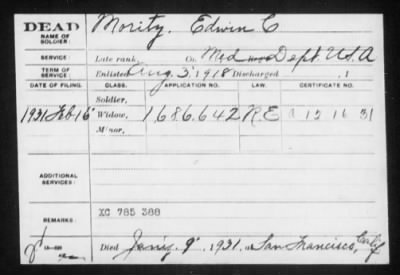 DEAD Moritz, Edwin C
NAME OF SOLDIER:
SERVICE Late rank, Co. Med Dept. U.S.A
TERM OF SERVICE Enlisted Aug. 3 1918 Discharged , 1
DATE OF FILING. CLASS. APPLICATION NO. LAW. CERTIFICATE NO.
Soldier,
1931 Feb 16 Widow, 1686.642 R E A 12 16 31
Minor,
ADDITIONAL SERVICES:
REMARKS: XC 785 388
Died 9 1931, at San Francisco, Calif